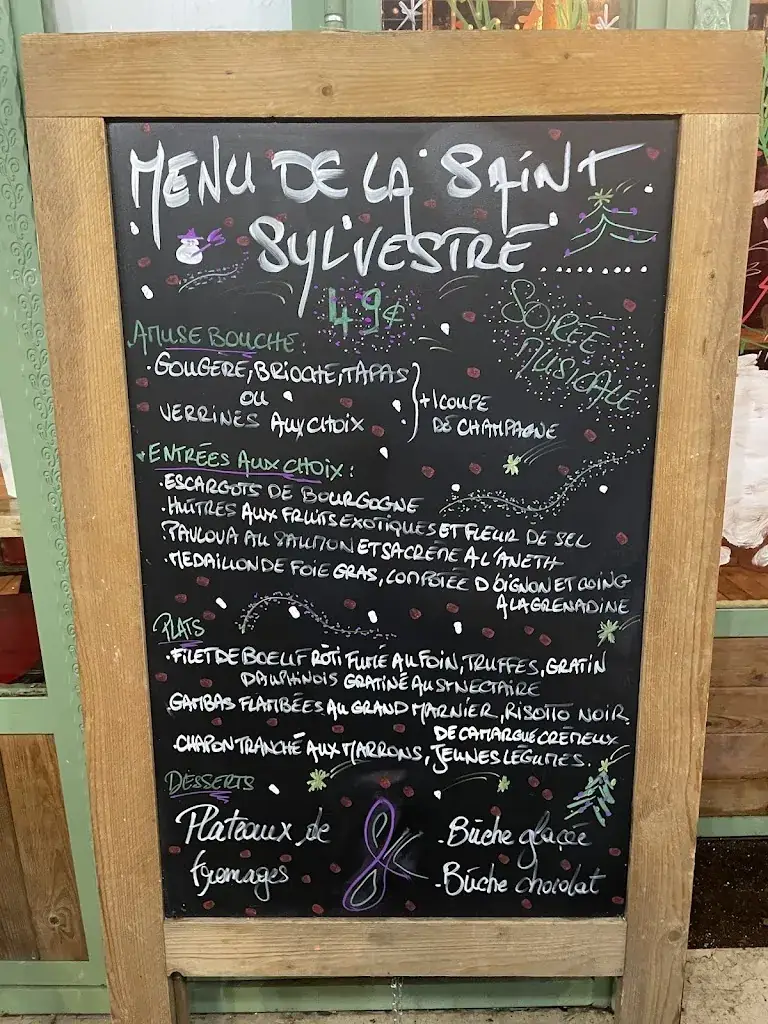 MENU DE LA SAINT
SYLVESTRE
49€
SOIRÉE
MUSICALE
AMUSE BOUCHE
• GOUGERE, BRIOCHE, TAPAS
OU
VERRINES AUX CHOIX
+1 COUPE
DE CHAMPAGNE
• ENTRÉES AUX CHOIX :
• ESCARGOTS DE BOURGOGNE
• HUÎTRES AUX FRUITS EXOTIQUES ET FLEUR DE SEL
• PAVLOVA AU SAUMON ET SA CRÈME A L'ANETH
• MEDAILLON DE FOIE GRAS, COMPOTÉE D'OIGNON ET COING
A LA GRENADINE
PLATS
• FILET DE BOEUF RÔTI FUMÉ AU FOIN, TRUFFES, GRATIN
DAUPHINOIS GRATINÉ AU ST NECTAIRE
GAMBAS FLAMBÉES AU GRAND MARNIER, RISOTTO NOIR
DE CAMARGUE CRÉMEUX
• CHAPON TRANCHÉ AUX MARRONS, JEUNES LÉGUMES.
DESSERTS
Plateaux de
fromages
&
• Bûche glacée
• Bûche chocolat